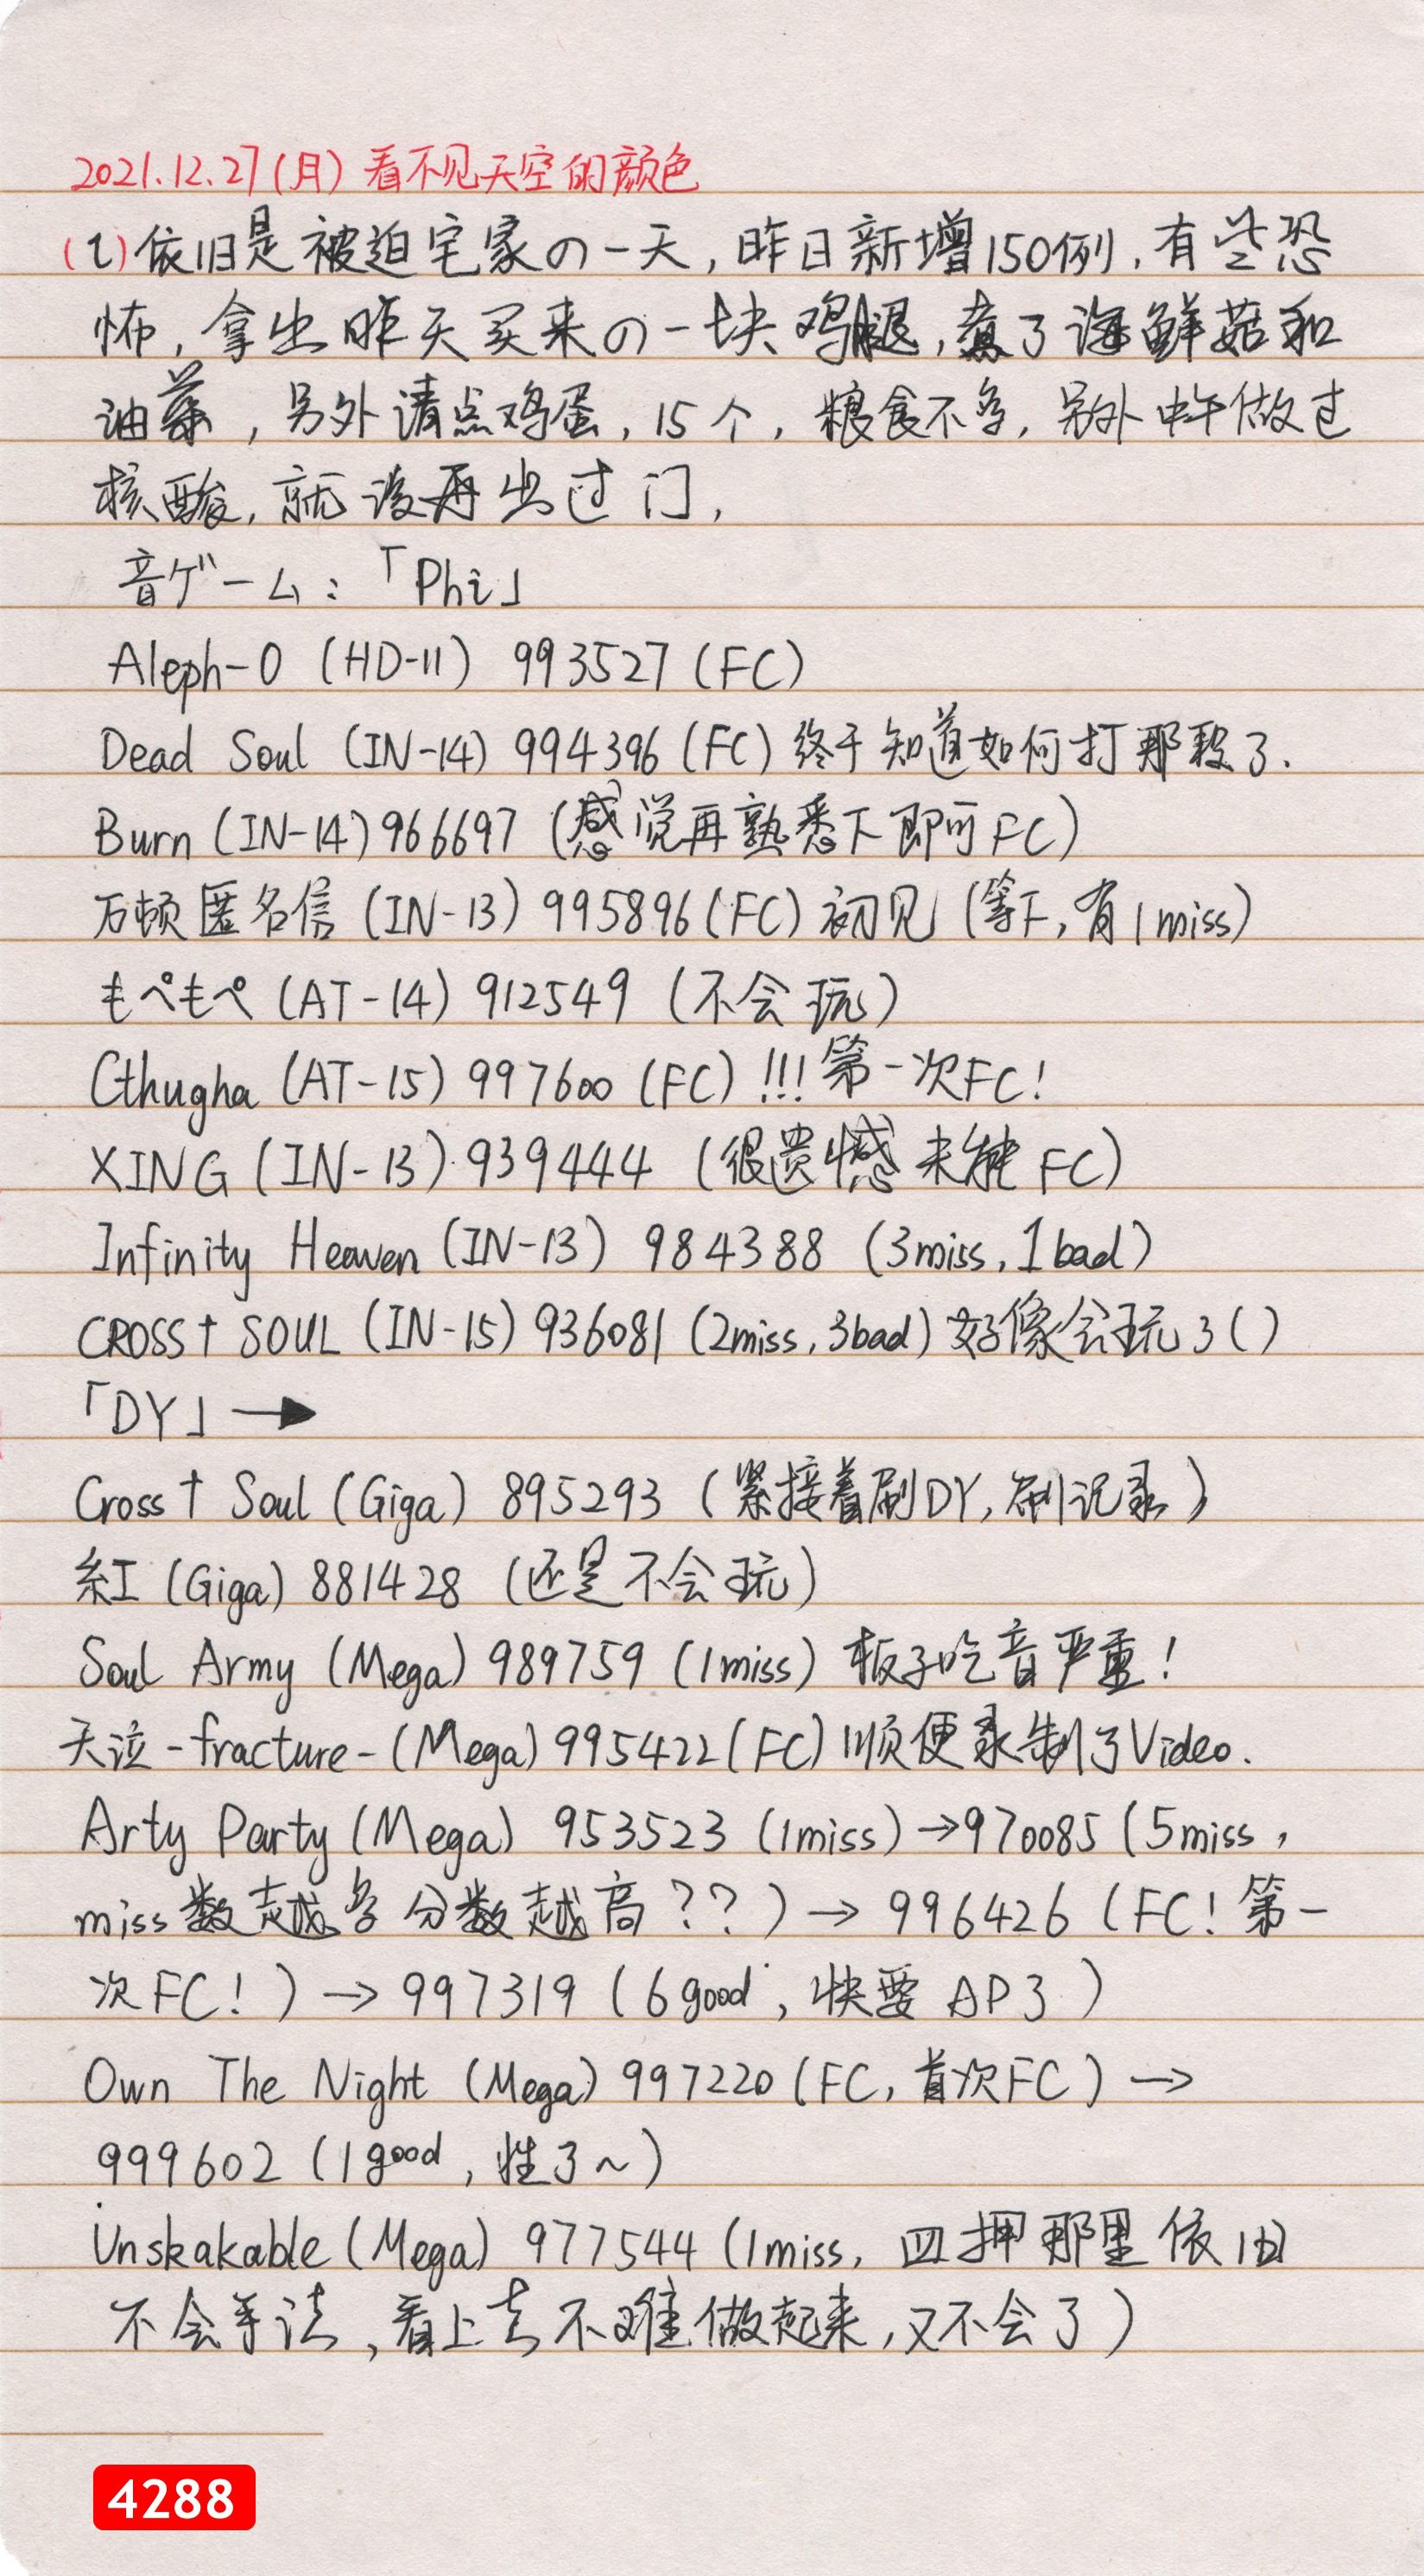 2021.12.27(月) 看不见天空的颜色
(1)依旧是被迫宅家の一天,昨日新增150例,有些恐
怖,拿出昨天买来の一块鸡腿,煮了海鲜菇和
油菜,另外清点鸡蛋,15个,粮食不多,另外中午做过
核酸,就没再出过门,
音ゲーム:「Phi」
Aleph-0 (HD-11) 993527(FC)
Dead Soul (IN-14) 994396(FC)终于知道如何打那段了.
Burn(IN-14)966697 (感觉再熟悉下即可FC)
万顿匿名信(IN-13)995896(FC)初见(等下,有1miss)
もぺもぺ(AT-14) 912549 (不会玩)
Cthugha(AT-15) 997600(FC)!!!第一次FC!
XING(IN-13) 939444 (很遗憾未能FC)
Infinity Heaven(IN-13) 984388 (3miss,1bad)
CROSS†SOUL(IN-15) 936081(2miss,3bad)好像会玩了()
「DY」→
Cross†Soul(Giga) 895293 (紧接着刷DY,刷记录)
紅(Giga) 881428 (还是不会玩)
Soul Army(Mega) 989759 (1miss) 板子吃音严重!
天泣-fracture-(Mega)995422(FC)顺便录制了Video.
Arty Party(Mega) 953523(1miss)→970085(5miss,
miss数越多分数越高??)→996426(FC!第一
次FC!)→997319(6good,快要AP了)
Own The Night(Mega)997220(FC,首次FC)→
999602(1good,性了~)
Unskakable(Mega) 977544(1miss,四押那里依旧
不会手法,看上去不难做起来,又不会了)
4288